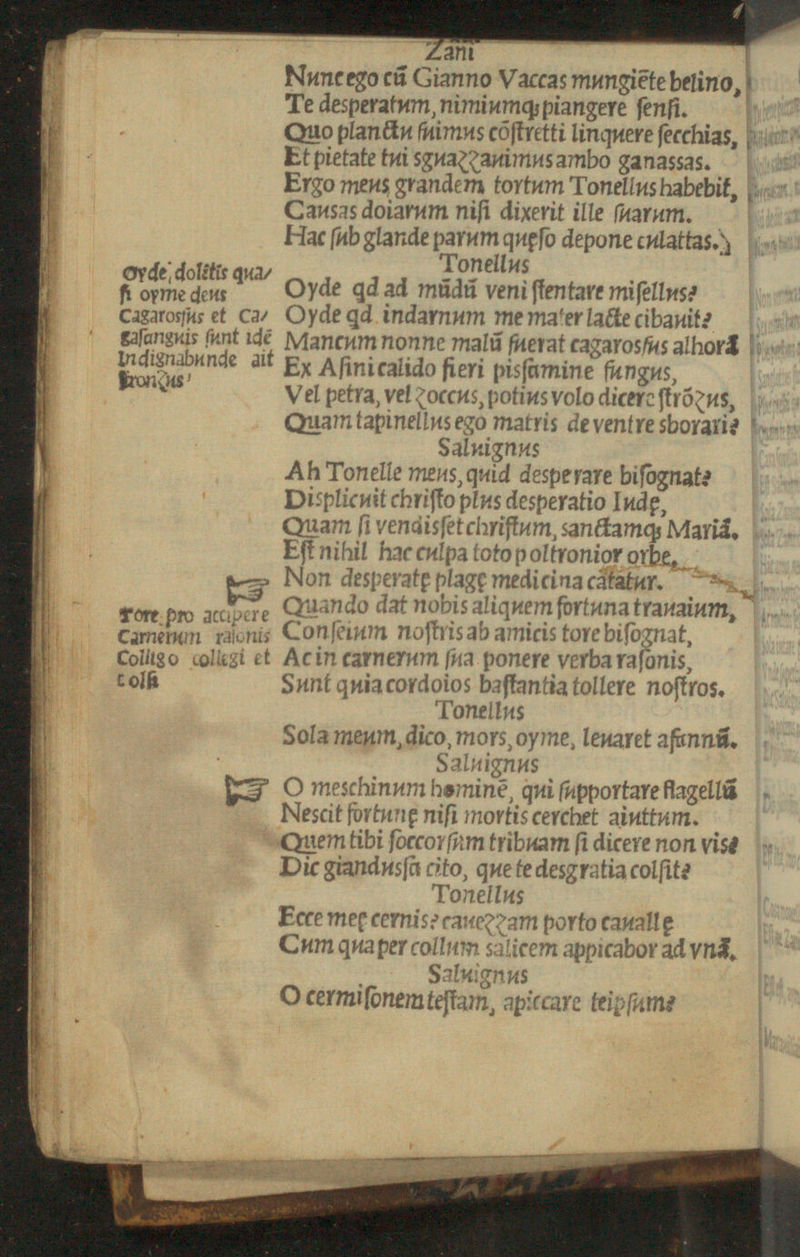 Zani
Nunc ego cū Gianno Vaccas mungiēte belino,
Te desperatum, nimiumq; piangere ſenſi.
Quo planctu ſuimus cōſtretti linquere ſecchias,
Et pietate tui sguazzauimus ambo ganassas.
Ergo meus grandem tortum Tonellus habebit,
Causas doiarum niſi dixerit ille ſuarum.
Hac ſub glande parum quęſo depone culattas.
Tonellus
Oyde qd ad mūdū veni ſtentare miſellus?
Oyde qd indarnum me mater lacte cibauit?
Mancum nonne malū fuerat cagarosſus alhorā
Ex Aſini calido fieri pisſamine fungus,
Vel petra, vel zoccus, potius volo dicere ſtrōzus,
Quam tapinellus ego matris de ventre sborari?
Saluignus
Ah Tonelle meus, quid desperare biſognat?
Displicuit chriſto plus desperatio Iudę,
Quam ſi vendisſet chriſtum, sanctamq; Mariā.
Eſt nihil hac culpa toto poltronior orbe,
Non desperatę plagę medicina cātatur.
Quando dat nobis aliquem fortuna trauaium,
Conſeium noſtris ab amicis tore biſognat,
Ac in carnerum ſua ponere verba raſonis,
Sunt quia cordoios baſtantia tollere noſtros.
Tonellus
Sola meum, dico, mors, oyme, leuaret afannū.
Saluignus
O meschinum hominē, qui ſupportare flagellū
Nescit fortunę niſi mortis cerchet aiuttum.
Quem tibi ſoccorſum tribuam ſi dicere non vis?
Dic giandusſa cito, que te desgratia colſit?
Tonellus
Ecce meę cernis? cauezzam porto cauallę
Cum qua per collum salicem appicabor ad vnā.
Saluignus
O cermiſonem teſtam, apiccare teipſum?
oyde, dolētis qua/
ſi oyme deus
Cagarosſus et Ca/
gaſanguis ſunt idē
Indignabunde ait
ſtronzus
Tore pro accipere
Carnerum raſonis
Colligo collegi et
colſi